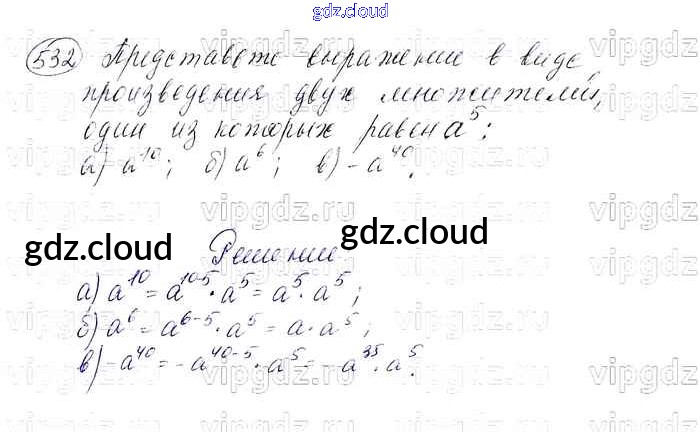 gdz.cloud
532 Представьте выражение в виде
произведения двух множителей,
один из которых равен a⁵:
а) a¹⁰; б) a⁶; в) -a⁴⁰.
gdz.cloud
gdz.cloud
Решение
а) a¹⁰ = a¹⁰⁻⁵ · a⁵ = a⁵ · a⁵;
б) a⁶ = a⁶⁻⁵ · a⁵ = a · a⁵;
в) -a⁴⁰ = -a⁴⁰⁻⁵ · a⁵ = -a³⁵ · a⁵.
vipgdz